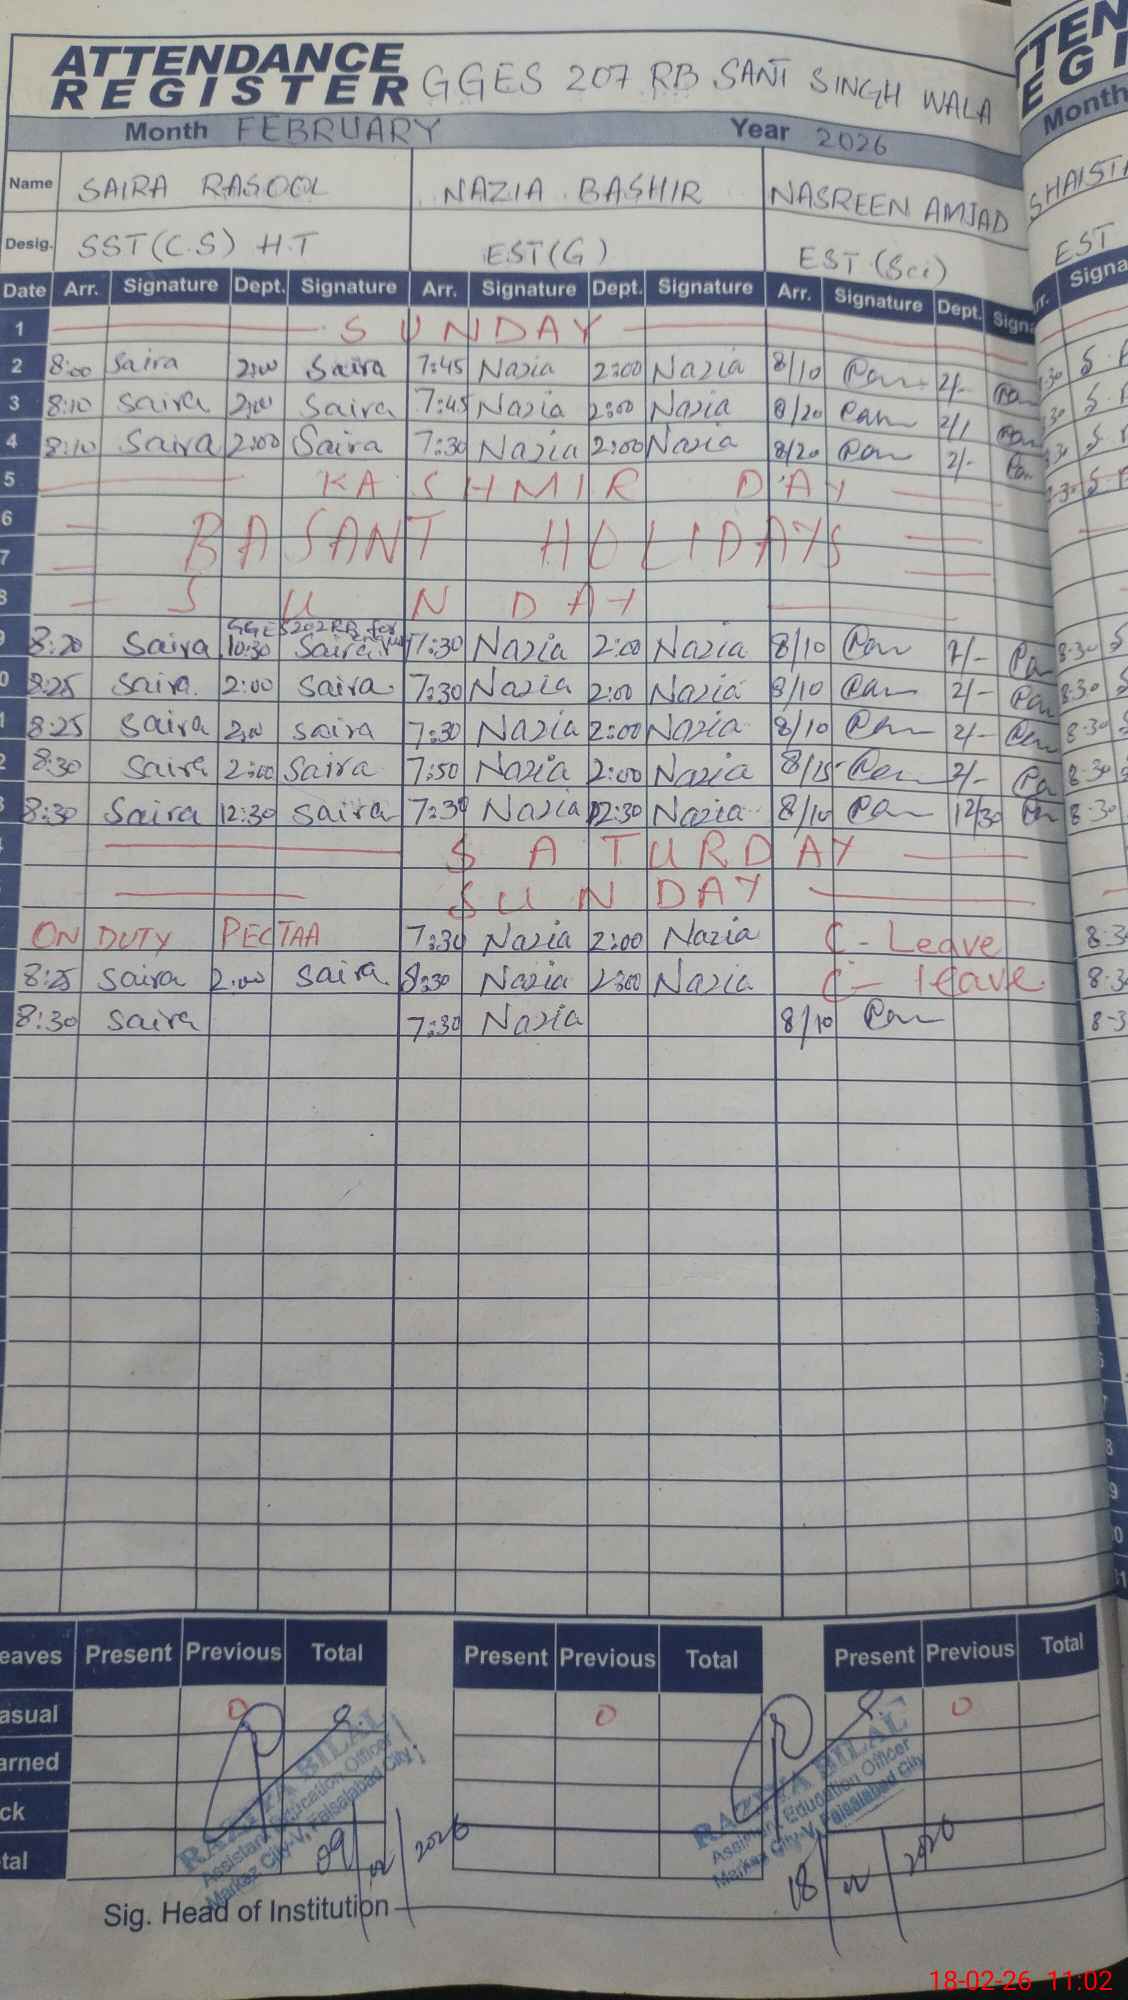 ATTENDANCE REGISTER GGES 207 RB SANT SINGH WALA
Month FEBRUARY Year 2026
Name SAIRA RASOOL NAZIA BASHIR NASREEN AMJAD
Desig. SST(C.S) H.T EST(G) EST (Sci) EST
Date Arr. Signature Dept. Signature Arr. Signature Dept. Signature Arr. Signature Dept.
1 SUNDAY
2 8:00 Saira 2:00 Saira 7:45 Nazia 2:00 Nazia 8/10 2/-
3 8:10 Saira 2:00 Saira 7:45 Nazia 2:00 Nazia 8/20
4 8:10 Saira 2:00 Saira 7:30 Nazia 2:00 Nazia 8/20 2/-
5 KASHMIR DAY
6 BASANT HOLIDAYS
7
8 SUNDAY
GGES 202 RB for
8:20 Saira 10:30 Saira 7:30 Nazia 2:00 Nazia 8/10 8:30
8:25 Saira 2:00 Saira 7:30 Nazia 2:00 Nazia 8/10 2/- 8:30
8:25 Saira 2:00 Saira 7:30 Nazia 2:00 Nazia 8/10 2/- 8:30
8:30 Saira 2:00 Saira 7:50 Nazia 2:00 Nazia 8/15 2/- 8:30
8:30 Saira 12:30 Saira 7:30 Nazia 12:30 Nazia 8/10 12/30 8:30
SATURDAY
SUNDAY
ON DUTY PECTAA 7:30 Nazia 2:00 Nazia C-Leave
8:25 Saira 2:00 Saira 8:30 Nazia 2:00 Nazia C-leave
8:30 Saira 7:30 Nazia 8/10
Present Previous Total Present Previous Total Present Previous Total
0 0 0
RAZIYA BILAL
Assistant Education Officer
Markaz City-V, Faisalabad City
09/02/2026
RAZIYA BILAL
Assistant Education Officer
Markaz City-V, Faisalabad City
18/02/2026
Sig. Head of Institution
18-02-26 11:02